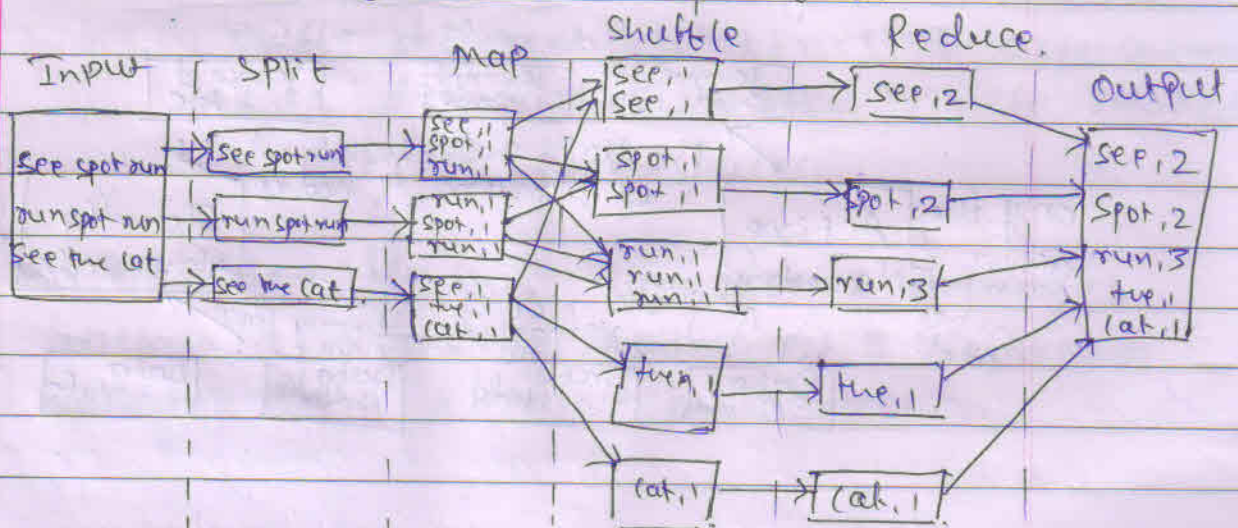 Input
Split
Map
Shuffle
Reduce.
Output
see spot run
run spot run
see the cat
see spot run
run spot run
see the cat
see, 1
spot, 1
run, 1
run, 1
spot, 1
run, 1
see, 1
the, 1
cat, 1
see, 1
see, 1
spot, 1
spot, 1
run, 1
run, 1
run, 1
, 1
cat, 1
see, 2
spot, 2
run, 3
the, 1
cat, 1
see, 2
spot, 2
run, 3
the, 1
cat, 1